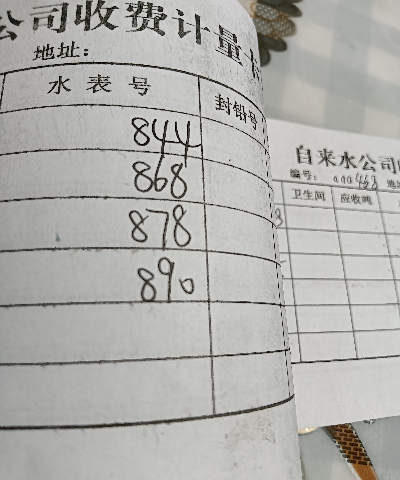 公司收费计量卡
地址：
水表号
封铅号
844
868
878
890
自来水公司
编号： 000468
卫生间 应收吨